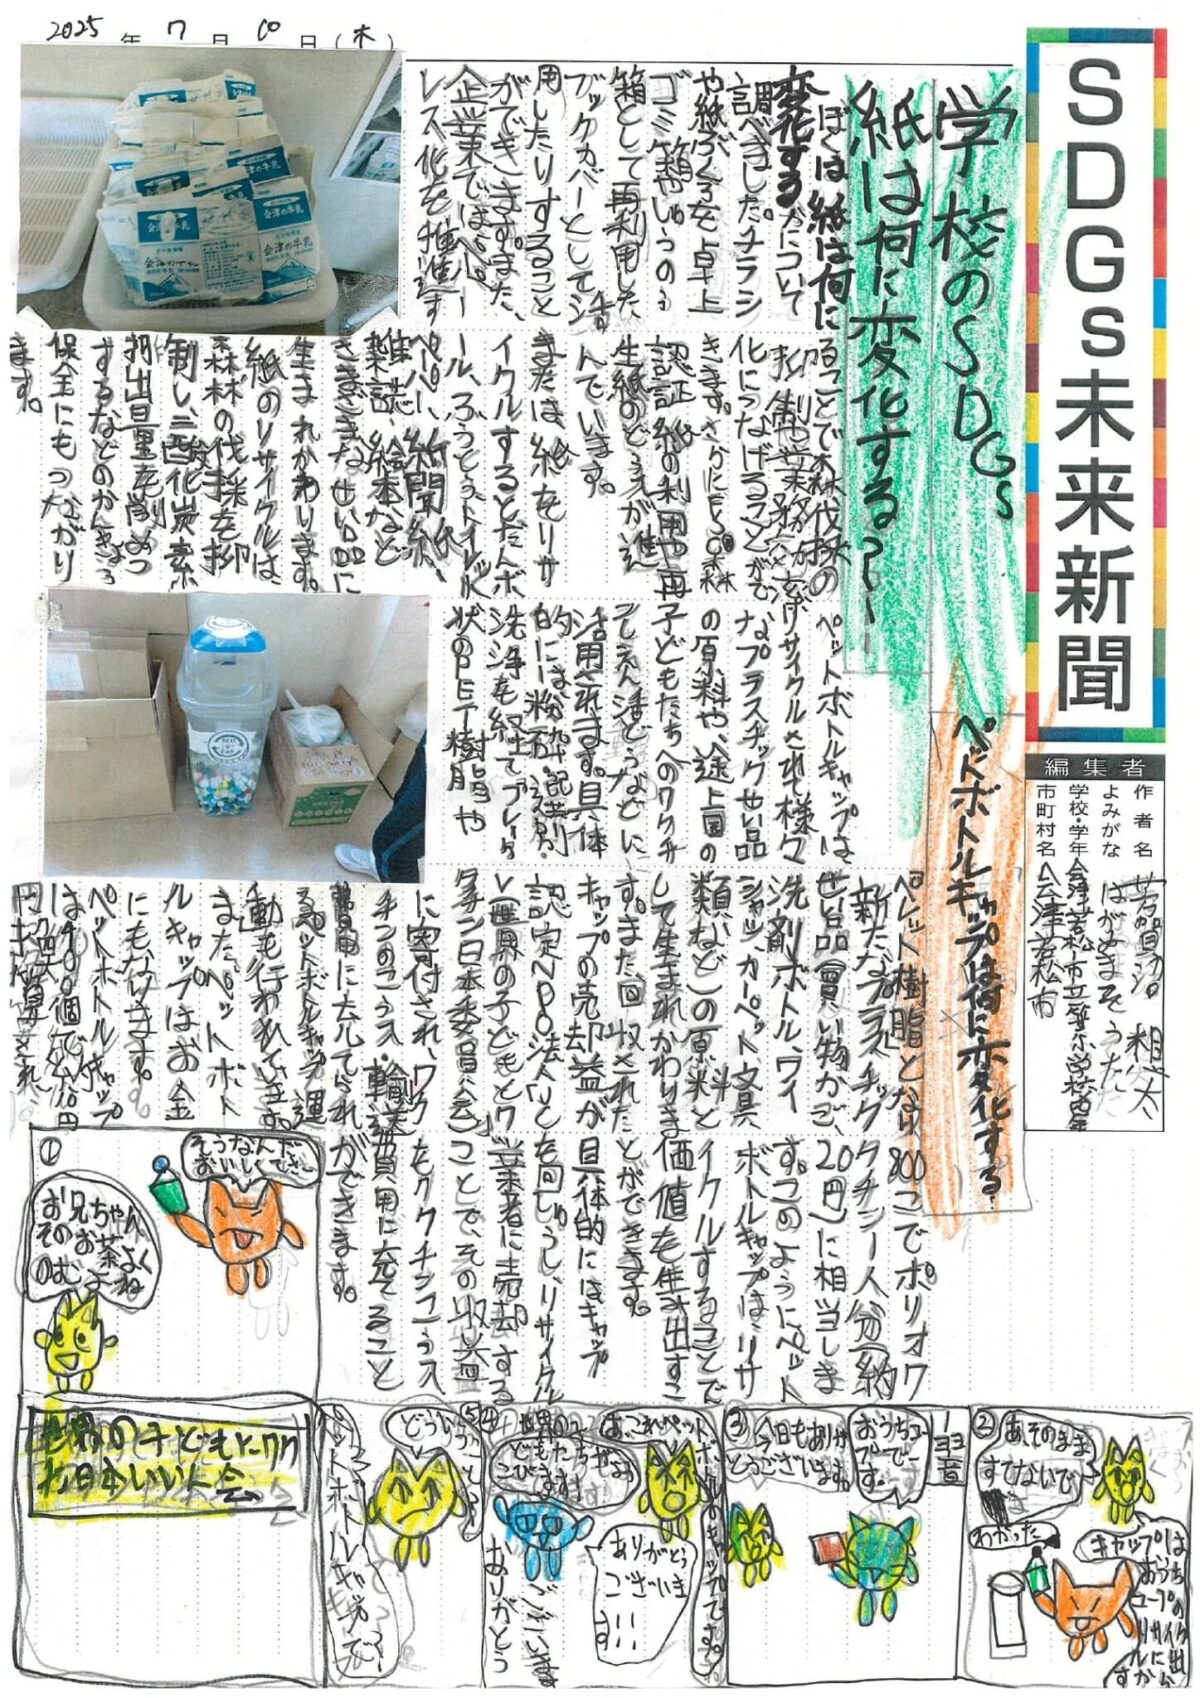 2025年7月10日(木)
SDGs未来新聞
編集者
作者名
よみがな はがやまそうた
学校・学年
市町村名 会津若松市
学校のSDGs
紙は何に変化する?
ぼくは紙は何に
変化するかについて
調べました。チラシ
や紙ぶくろを卓上
ゴミ箱やしゅうのう
箱として再利用した
ブックカバーとして
用したりすること
ができます。また、
企業ではペーパー
レス化を推進す
ることで森林伐採の
抑制や業務
化につなげることがで
きます。さらにFSC森林
認証紙の利用や再
生紙の
んでいます。
または紙をリサ
イクルするとだんボ
ール、ふうとう、トイレット
ペーパー、新聞紙、
雑誌、絵本など
さまざまなせい品に
生まれかわります。
紙のリサイクルは
森林の伐採を抑
制し、二酸化炭素
排出量を削減
するなどのかんきょう
保全にもつながり
ます。
ペットボトルキャップは何に変化する
ペットボトルキャップは
リサイクルされて様々
なプラスチックせい品
の原料や、途上国の
子どもたちへのワクチ
ンしえん活どうなどに
活用されます。具体
的には、粉砕・選別・
洗浄を経てフレーク
状のPET樹脂や
ペレット樹脂となり、
新たなプラスチック
せい品(買い物かご、
洗剤ボトル、ワイ
シャツ、カーペット、文具
類など)の原料と
して生まれかわりま
す。また、回収された
キャップの売却益が
認定NPO法人「
世界の子どもとワ
クチン日本委員会」
に寄付され、ワク
チンのこう入・輸送
費用に充てられ
るペットボトルキャップ運
動も行われています。
またペットボト
ルキャップはお金
にもなります。
ペットボトルキャップ
は400個で約10円
800こでポリオワ
クチン一人分(約
20円)に相当しま
す。このようにペット
ボトルキャップは、リサ
イクルすることで
価値を生み出すこ
とができます。
具体的にはキャップ
を回しゅうし、リサイクル
業者に売却する
ことで、その収益
をワクチンこう入
費用に充てること
ができます。
①
お兄ちゃん
そのお茶よく
のむよね
そうなんだ
おいしくて
②
あ、そのまま
すてないで
わかった
キャップは
おうち
コープの
リサイクル
③
翌日
おうちコー
プです。
今日もありが
とうございます。
④
あ、これペット
ボトルのキャップです。
ありがとう
ございま
す!!
⑤
どういうこと
ペットボトルキャップで
世界の子どもにワクチ
ン日本いいん会